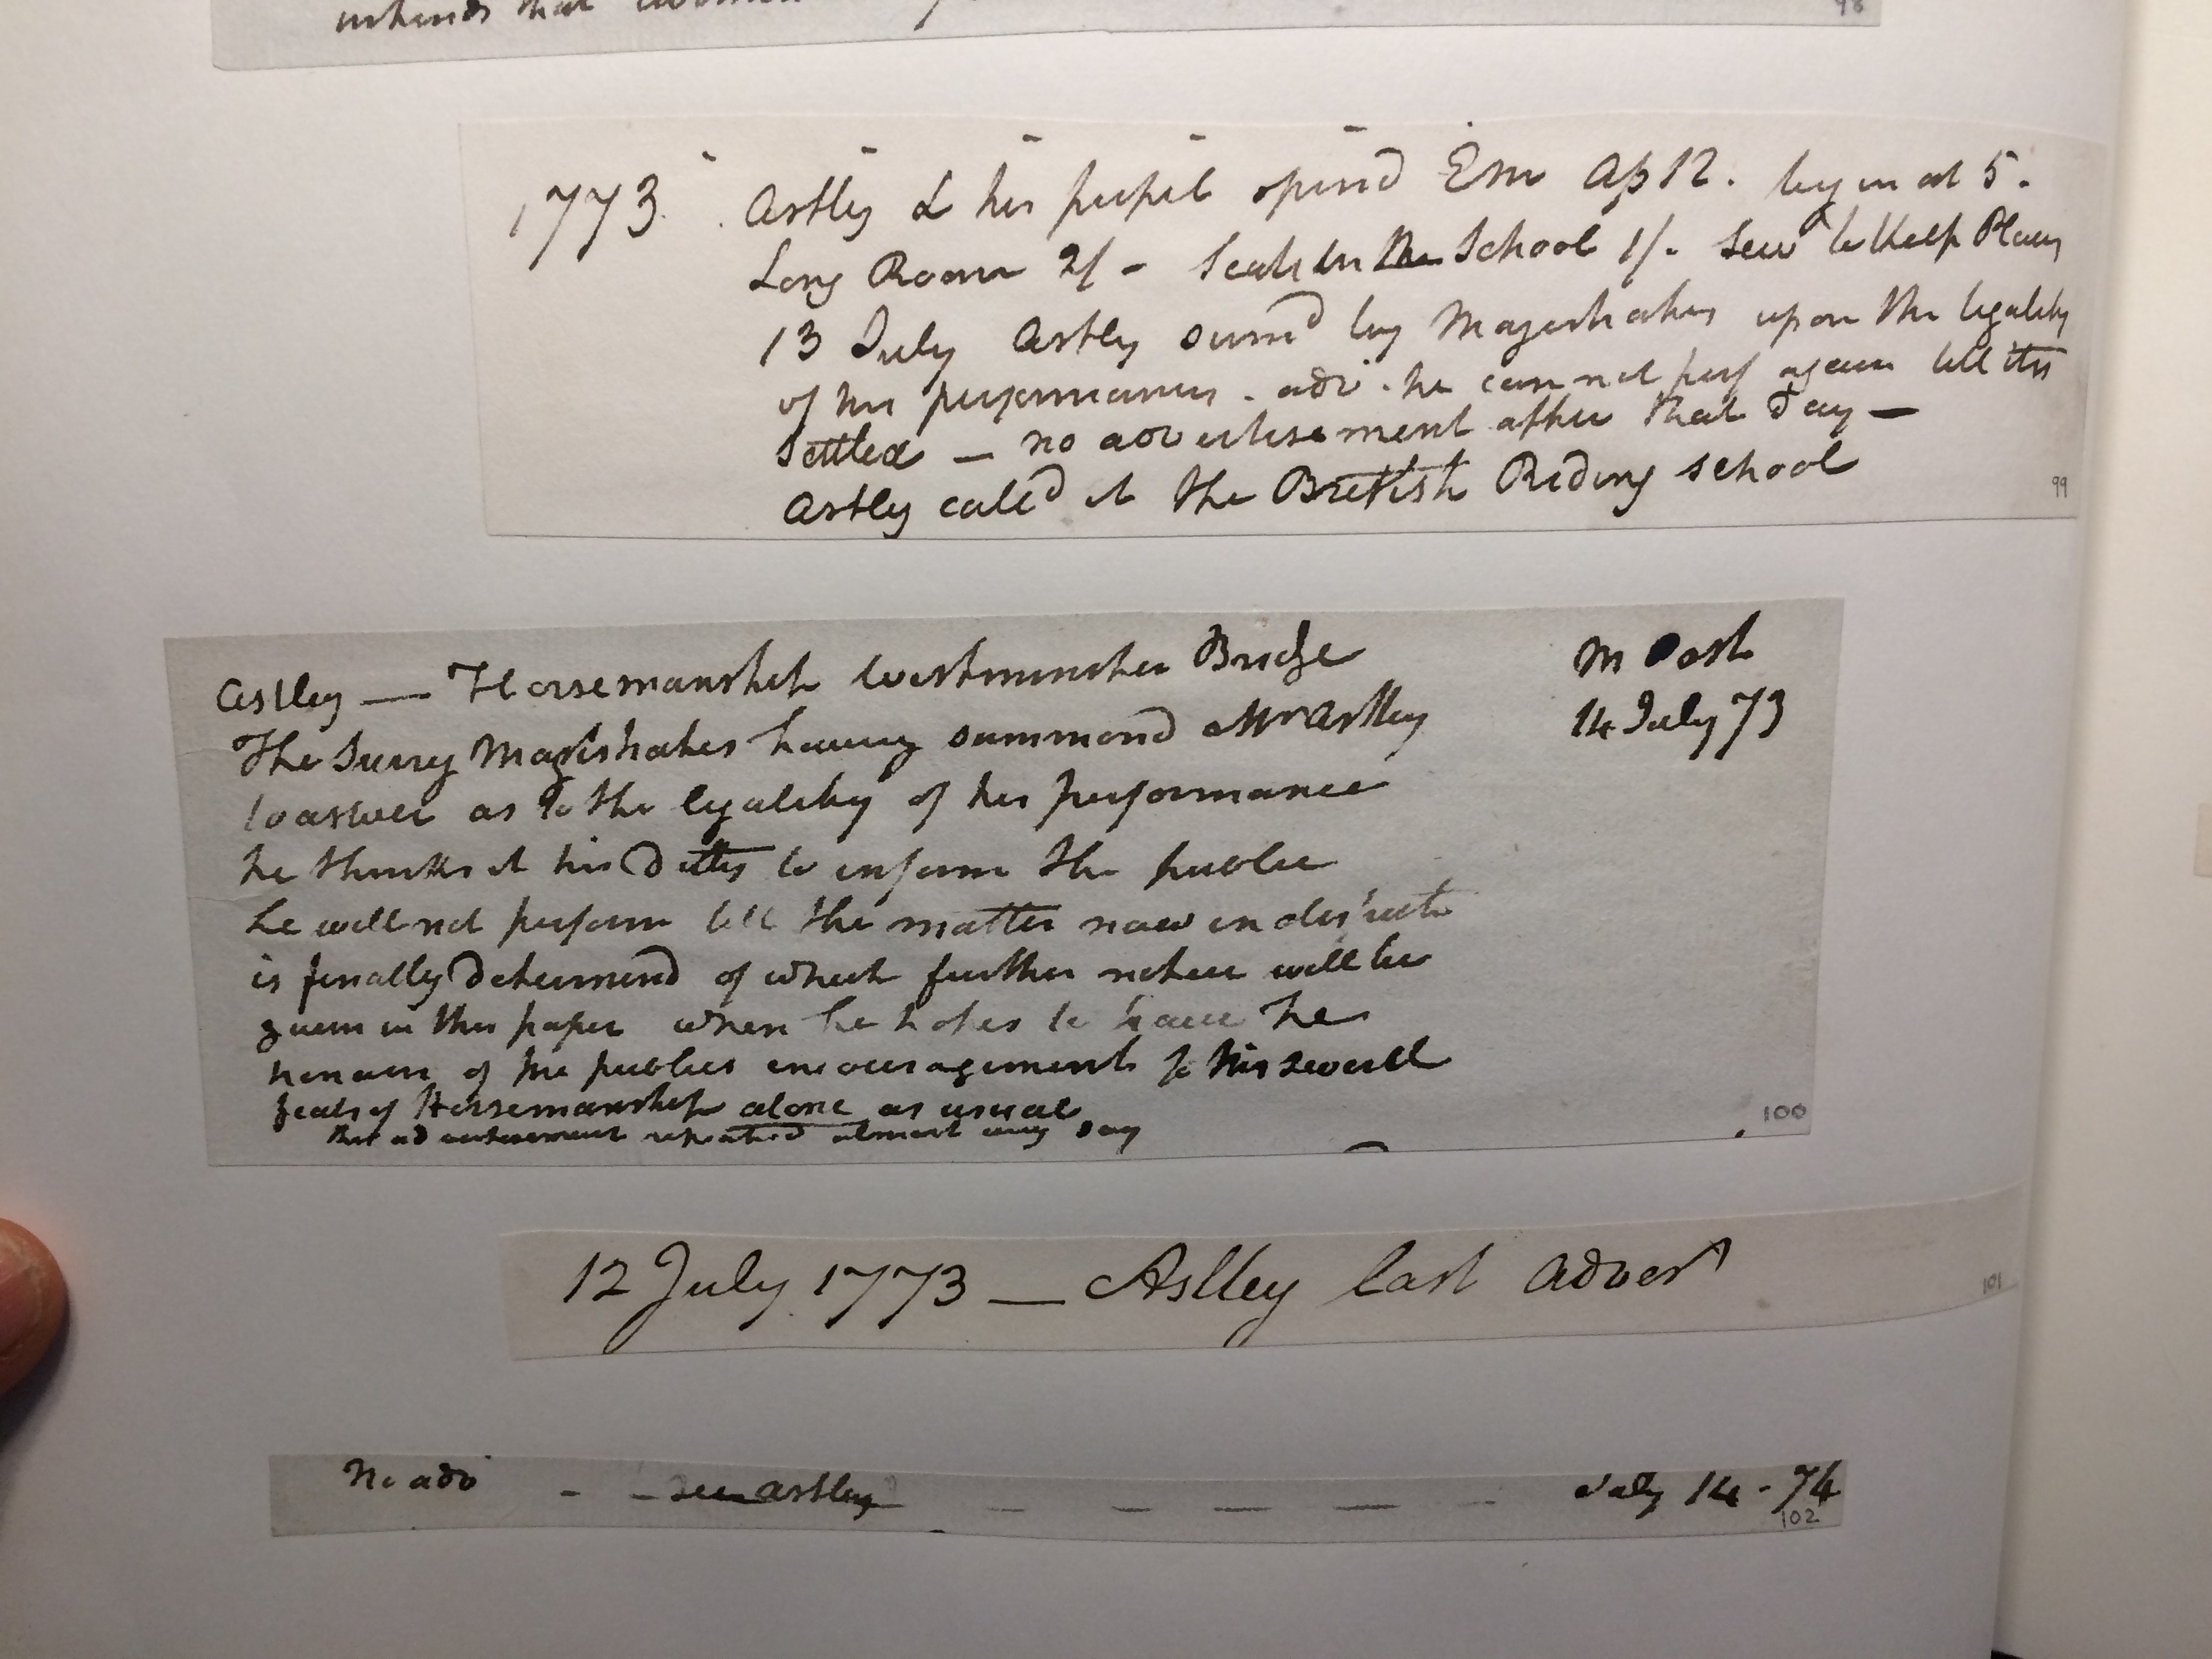 intends that women
98
1773. Astley & his pupil opend Em Ap 12. begin at 5.
Long Room 2/- Seats in the School 1/. Serv to Keep Places
13 July Astley sumd by Magistrates upon the legality
of his performances. adv. he can not perf again till its
Settled — no advertisement after that day —
Astley calld it the British Riding school
99
Astley — Horsemanship Westminster Bridge
M Post
The Surry Magistrates having summond Mr Astley
14 July 73
to aswer as to the legality of his performance
he thinks it his Duty to inform the public
he will not perform till the matter now in dispute
is finally determind of which further notice will be
given in this paper when he hopes to have the
honour of the publics encouragement to his severll
feats of Horsemanship alone as usual
this advertisement repeated almost every day
100
12 July 1773 — Astley last advert
101
No adv - - See Astley - - - - - July 14 - 74
102